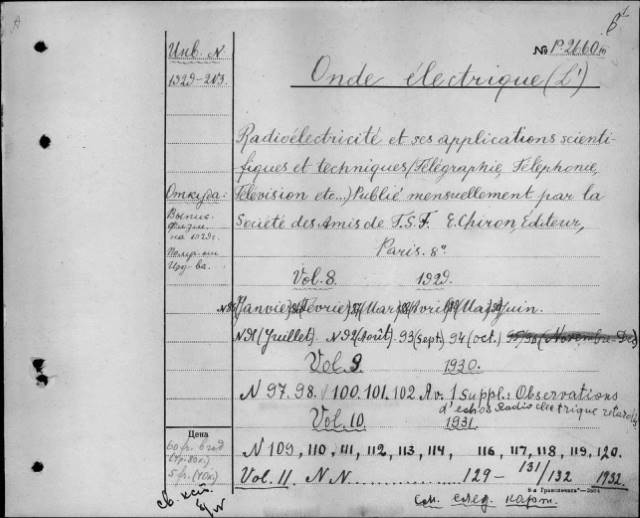 Инв. N
1929-213
№ P. 2660
Onde électrique (L')
Radioélectricité et ses applications scienti-
fiques et techniques (Télégraphie, Téléphonie,
Télevision etc...) Publié mensuellement par la
Société des Amis de T.S.F. E. Chiron, Editeur,
Paris. 8°
Откуда:
Выпис.
на 1929 г.
Vol. 8. 1929.
(Janvier) (Février) (Mars) (Avril) (Mai) Juin.
N 91 (Juillet). N 92 (Août). 93 (Sept.) 94 (Oct.) 95/96 (Novembre-Dec)
Vol. 9 1930.
N 97. 98. 100. 101. 102. Av. 1 Suppl.: Observations
d'echos Radioélectrique
Vol. 10. 1931.
Цена
N 109, 110, 111, 112, 113, 114, 116, 117, 118, 119, 120.
Vol. 11. N N. 129 - 131/132 1932.
См. след. карт.